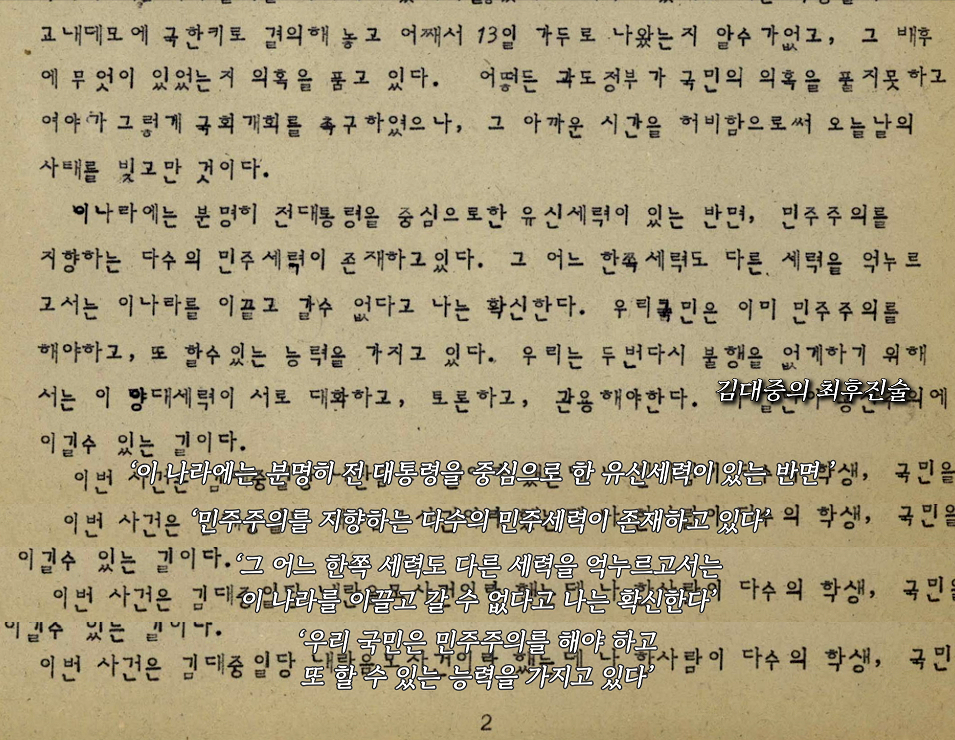 교내데모에 국한키로 결의해 놓고 어째서 13일 가두로 나왔는지 알수가없고, 그 배후
에 무엇이 있었는지 의혹을 품고 있다. 어떻든 과도정부가 국민의 의혹을 풀지못하고
여야가 그렇게 국회개회를 촉구하였으나, 그 아까운 시간을 허비함으로써 오늘날의
사태를 빚고만 것이다.
이나라에는 분명히 전대통령을 중심으로한 유신세력이 있는 반면, 민주주의를
지향하는 다수의 민주세력이 존재하고있다. 그 어느 한쪽세력도 다른 세력을 억누르
고서는 이나라를 이끌고 갈수 없다고 나는 확신한다. 우리국민은 이미 민주주의를
해야하고, 또 할수있는 능력을 가지고 있다. 우리는 두번다시 불행을 없게하기 위해
서는 이 양대세력이 서로 대화하고, 토론하고, 관용해야한다.
김대중의 최후진술
이길수 있는 길이다.
이번 사건은 학생, 국민을
‘이 나라에는 분명히 전 대통령을 중심으로 한 유신세력이 있는 반면’
이번 사건은 다수의 학생, 국민을
‘민주주의를 지향하는 다수의 민주세력이 존재하고 있다’
이길수 있는 길이다.
‘그 어느 한쪽 세력도 다른 세력을 억누르고서는
이번 사건은 김대중 다수의 학생, 국민
이 나라를 이끌고 갈 수 없다고 나는 확신한다’
이길수 있는 길이다.
‘우리 국민은 민주주의를 해야 하고
이번 사건은 김대중일당 내란음모사건이라 했는데 나 한사람이 다수의 학생, 국민
또 할 수 있는 능력을 가지고 있다’
2